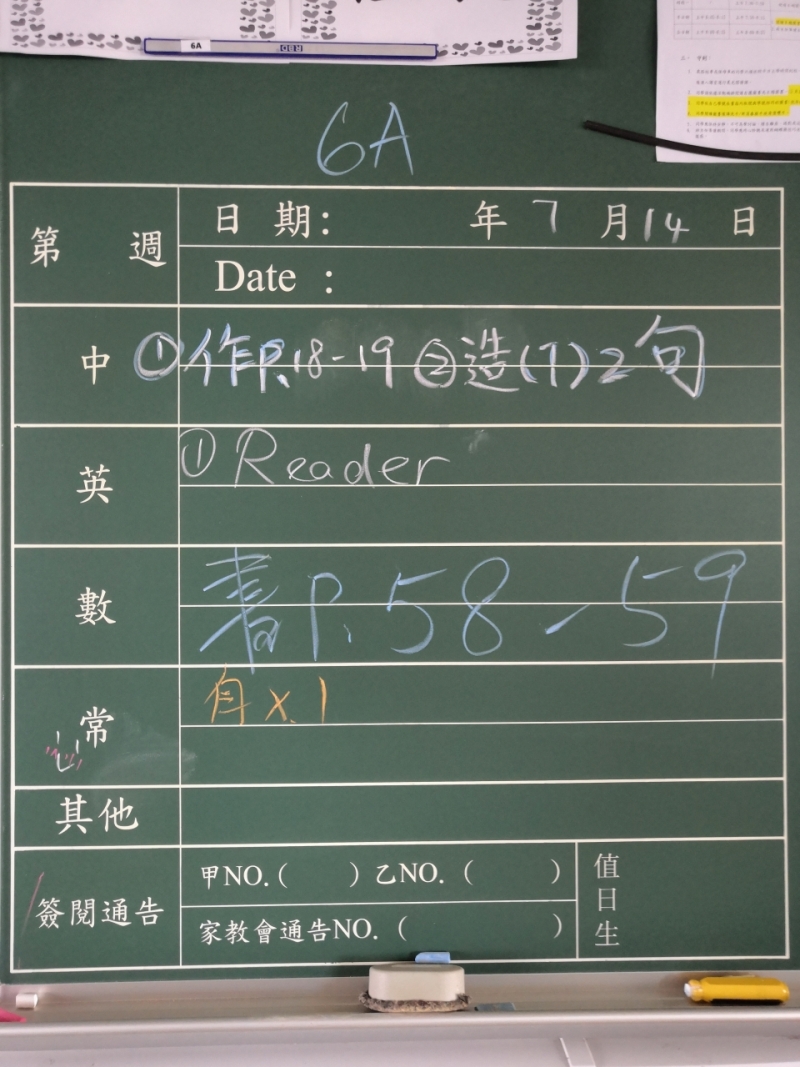 6A
6A
第 週
日 期: 年 7 月 14 日
Date :
中
①作P.18-19 ②造(7)2句
英
①Reader
數
書P.58-59
常
自 x.1
其他
簽閱通告
甲NO.( ) 乙NO. ( )
家教會通告NO. ( )
值日生